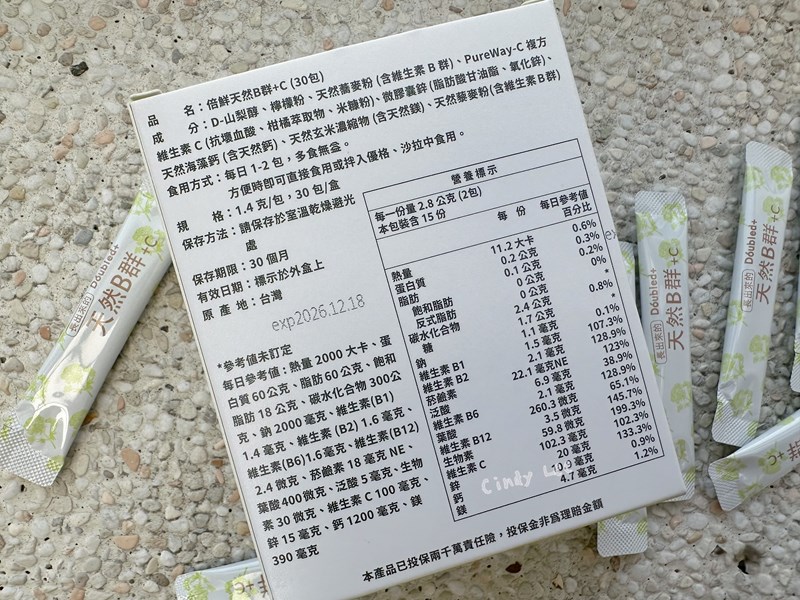 品 名：倍鮮天然B群+C (30包)
成 分：D-山梨醇、檸檬粉、天然蕎麥粉 (含維生素 B 群)、PureWay-C 複方
維生素 C (抗壞血酸、柑橘萃取物、米糠粉)、微膠囊鋅 (脂肪酸甘油酯、氧化鋅)、
天然海藻鈣 (含天然鈣)、天然玄米濃縮物 (含天然鎂)、天然藜麥粉(含維生素B群)
食用方式：每日 1-2 包，多食無益。
方便時即可直接食用或拌入優格、沙拉中食用。
規 格：1.4 克/包，30 包/盒
保存方法：請保存於室溫乾燥避光
處
保存期限：30 個月
有效日期：標示於外盒上
原 產 地：台灣
exp2026.12.18
*參考值未訂定
每日參考值：熱量 2000 大卡、蛋
白質 60公克、脂肪 60 公克、飽和
脂肪 18 公克、碳水化合物 300公
克、鈉 2000 毫克、維生素(B1)
1.4 毫克、維生素 (B2) 1.6 毫克、
維生素(B6)1.6毫克、維生素(B12)
2.4 微克、菸鹼素 18 毫克 NE、
葉酸 400微克、泛酸 5毫克、生物
素 30 微克、維生素 C 100 毫克、
鋅 15 毫克、鈣 1200 毫克、鎂
390 毫克
營養標示
每一份量 2.8 公克 (2包)
本包裝含 15 份
每 份 每日參考值
百分比
熱量 11.2 大卡 0.6%
蛋白質 0.2 公克 0.3%
脂肪 0.1 公克 0.2%
飽和脂肪 0 公克 0%
反式脂肪 0 公克 *
碳水化合物 2.4 公克 0.8%
糖 1.7 公克 *
鈉 1.1 毫克 0.1%
維生素 B1 1.5 毫克 107.3%
維生素 B2 2.1 毫克 128.9%
菸鹼素 22.1 毫克NE 123%
泛酸 6.9 毫克 38.9%
維生素 B6 2.1 毫克 128.9%
葉酸 260.3 微克 65.1%
維生素 B12 3.5 微克 145.7%
生物素 59.8 微克 199.3%
維生素 C 102.3 毫克 102.3%
鋅 20 毫克 133.3%
鈣 10.9 毫克 0.9%
鎂 4.7 毫克 1.2%
本產品已投保兩千萬責任險，投保金非為理賠金額
Cindy
長出來的 Doubled+
天然B群+C
長出來的 Doubled+
天然B群+C
長出來的 Doubled+
天然B群+C